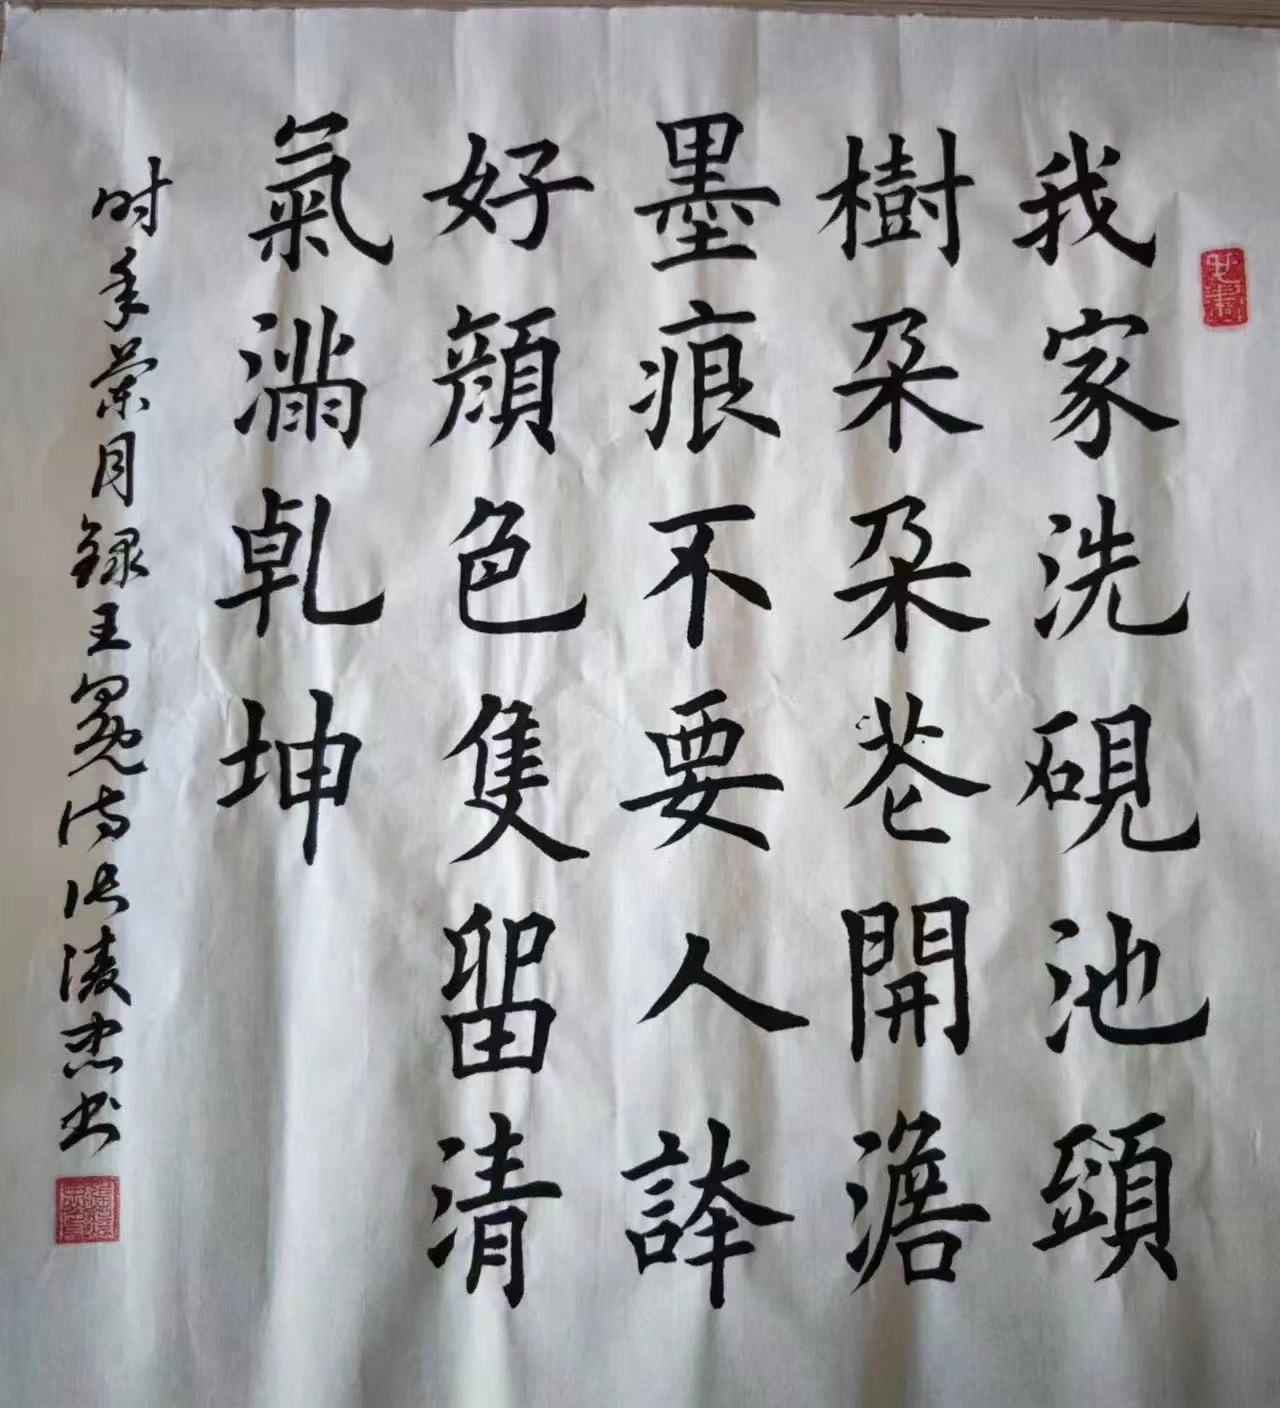 我家洗硯池頭
樹朵朵花開澹
墨痕不要人誇
好顔色隻留清
氣滿乹坤
时年荣月録王冕诗洪淩杰书